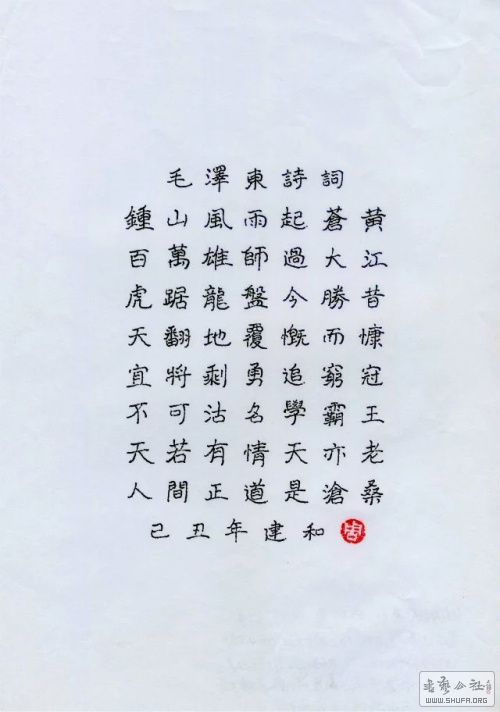 毛澤東詩詞
鍾山風雨起蒼黃
百萬雄師過大江
虎踞龍盤今勝昔
天翻地覆慨而慷
宜將剩勇追窮冠
不可沽名學霸王
天若有情天亦老
人間正道是滄桑
己丑年建和
書藝公社
WWW.SHUFA.ORG